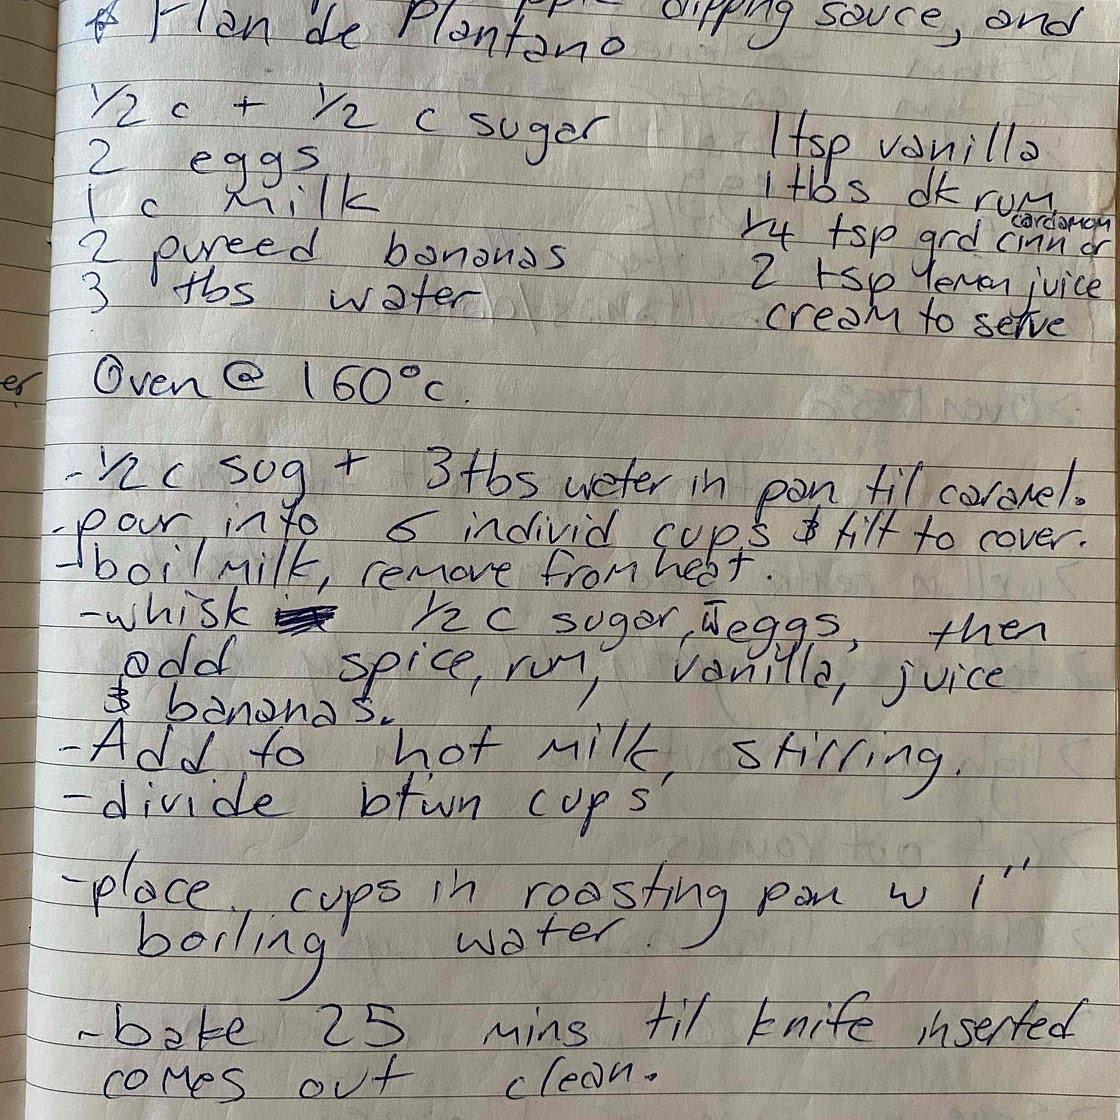 dipping sauce, and
* Flan de Plantano
1/2 c + 1/2 c sugar
2 eggs
1 c milk
2 pureed bananas
3 tbs water
1 tsp vanilla
1 tbs dk rum
cardamom
1/4 tsp grd cinn or
2 tsp lemon juice
cream to serve
er
Oven @ 160°c.
- 1/2 c sug + 3 tbs water in pan til caramel.
- pour into 6 individ cups & tilt to cover.
- boil milk, remove from heat.
- whisk 1/2 c sugar, w eggs, then
add spice, rum, vanilla, juice
& bananas.
- Add to hot milk, stirring.
- divide btwn cups
- place cups in roasting pan w 1"
boiling water.
- bake 25 mins til knife inserted
comes out clean.